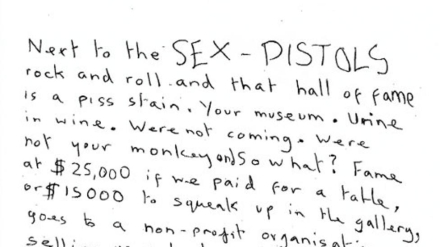 Next to the SEX-PISTOLS
rock and roll and that hall of fame
is a piss stain. Your museum. Urine
in wine. Were not coming. Were
not your monkey and so what? Fame
at $25,000 if we paid for a table,
or $15000 to squeak up in the gallery,
goes to a non-profit organisati
selli